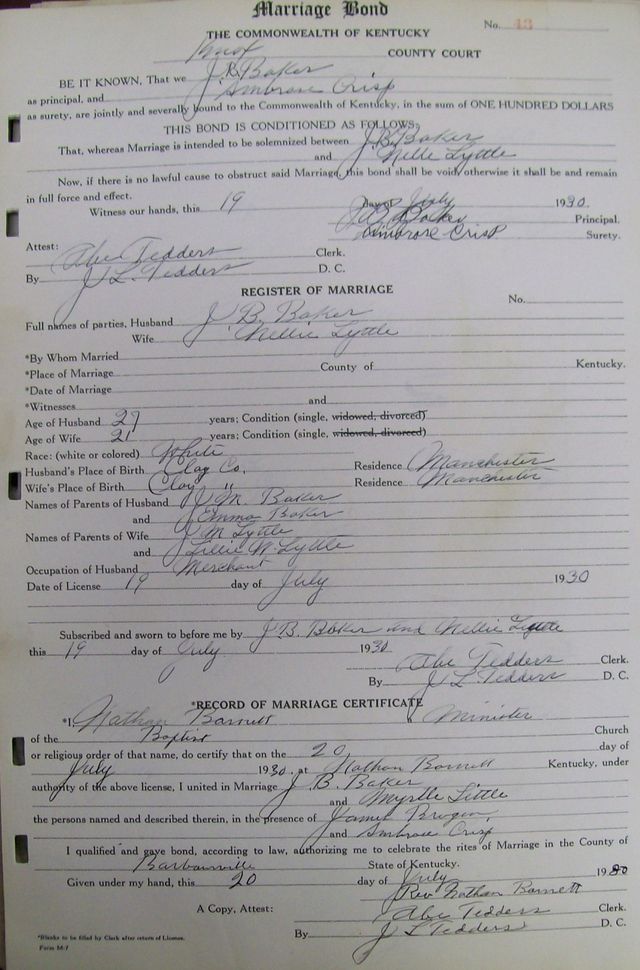 Marriage Bond
No. 43
THE COMMONWEALTH OF KENTUCKY
Knox COUNTY COURT
BE IT KNOWN, That we J. B. Baker
as principal, and Ambrose Crisp
as surety, are jointly and severally bound to the Commonwealth of Kentucky, in the sum of ONE HUNDRED DOLLARS
THIS BOND IS CONDITIONED AS FOLLOWS:
That, whereas Marriage is intended to be solemnized between J. B. Baker
and Nelle Lyttle
Now, if there is no lawful cause to obstruct said Marriage, this bond shall be void, otherwise it shall be and remain
in full force and effect.
Witness our hands, this 19 day of July 1930.
J. B. Baker Principal.
Ambrose Crisp Surety.
Attest:
Abe Tedders Clerk.
By J L. Tedders D. C.
REGISTER OF MARRIAGE
No.
Full names of parties, Husband J. B. Baker
Wife Nellie Lyttle
*By Whom Married
*Place of Marriage County of Kentucky.
*Date of Marriage
*Witnesses and
Age of Husband 27 years; Condition (single, widowed, divorced)
Age of Wife 21 years; Condition (single, widowed, divorced)
Race: (white or colored) White
Husband's Place of Birth Clay Co. Residence Manchester
Wife's Place of Birth Clay " Residence Manchester
Names of Parents of Husband J. M. Baker
and Emma Baker
Names of Parents of Wife J M Lyttle
and Lillie W. Lyttle
Occupation of Husband Merchant
Date of License 19 day of July 1930
Subscribed and sworn to before me by J. B. Baker and Nellie Lyttle
this 19 day of July 1930
Abe Tedders Clerk.
By J L Tedders D. C.
*RECORD OF MARRIAGE CERTIFICATE
*I, Nathan Barnett a Minister
of the Baptist Church
or religious order of that name, do certify that on the 20 day of
July 1930, at Nathan Barnett Kentucky, under
authority of the above license, I united in Marriage J. B. Baker
and Myrtle Little
the persons named and described therein, in the presence of James Brogan
and Ambrose Crisp
I qualified and gave bond, according to law, authorizing me to celebrate the rites of Marriage in the County of
Barbourville State of Kentucky.
Given under my hand, this 20 day of July 1930
Rev Nathan Barnett
A Copy, Attest: Abe Tedders Clerk.
By J L Tedders D. C.
*Blanks to be filled by Clerk after return of License.
Form M-7